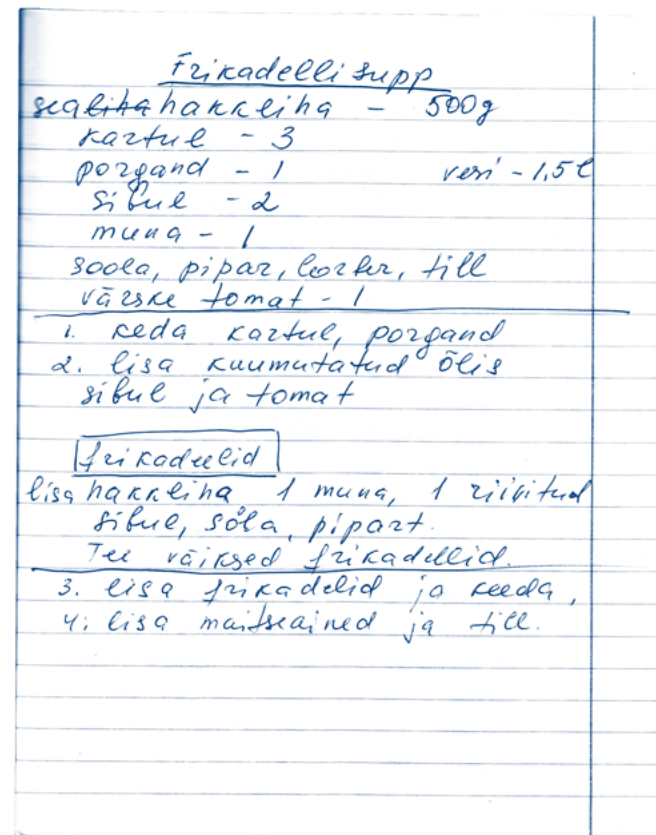 Frikadelli supp
sealiha hakkliha - 500g
kartul - 3
porgand - 1 vesi - 1,5 l
sibul - 2
muna - 1
soola, pipar, lorber, till
värske tomat - 1
1. keda kartul, porgand
2. lisa kuumutatud õlis
sibul ja tomat
frikadeelid
lisa hakkliha 1 muna, 1 riivitud
sibul, sola, pipart.
Tee väiksed frikadellid.
3. lisa frikadelid ja keeda,
4. lisa maitseained ja till.